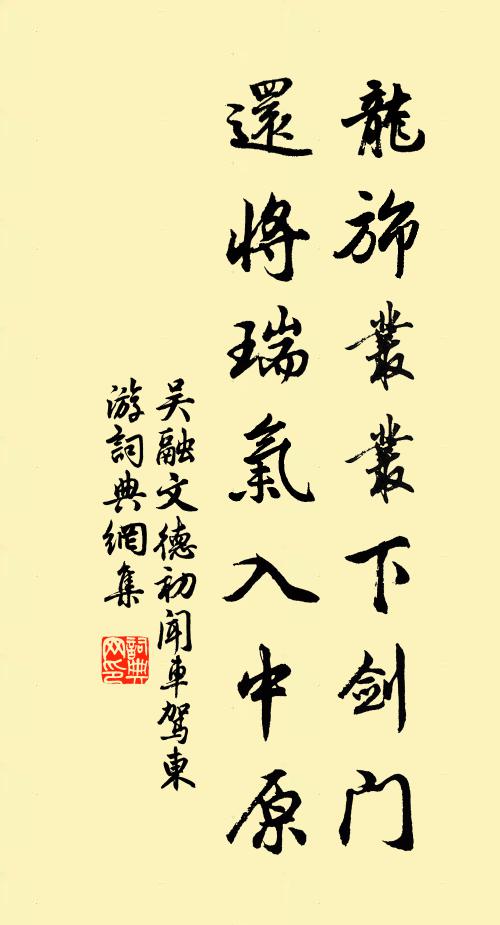 龍旆叢叢下劍门
還將瑞氣入中原
吴融文德初闻車駕東
游詞典網集
詞典
网印